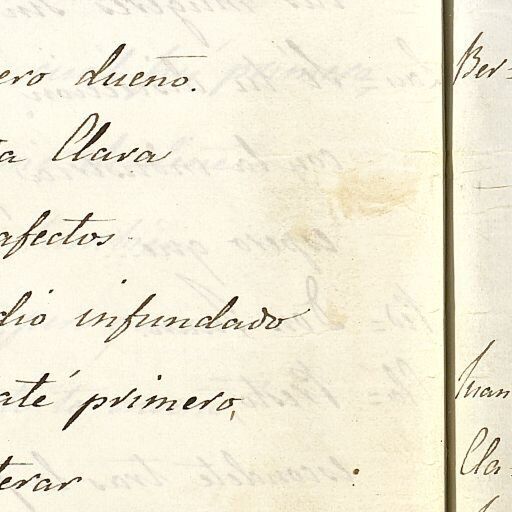 ero dueño.
ta Clara
afectos
dio infundado
até primero,
terar
Ber=
Juan
Cla=